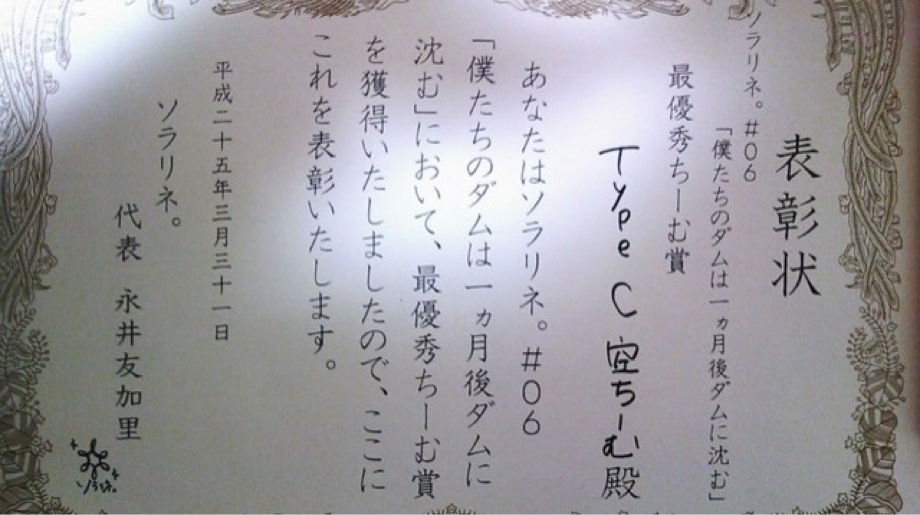 表彰状
ソラリネ。#06
「僕たちのダムは一ヵ月後ダムに沈む」
最優秀ちーむ賞
Type C 空ちーむ殿
あなたはソラリネ。#06
「僕たちのダムは一ヵ月後ダムに
沈む」において、最優秀ちーむ賞
を獲得いたしましたので、ここに
これを表彰いたします。
平成二十五年三月三十一日
ソラリネ。
代表 永井友加里
ソラリネ。